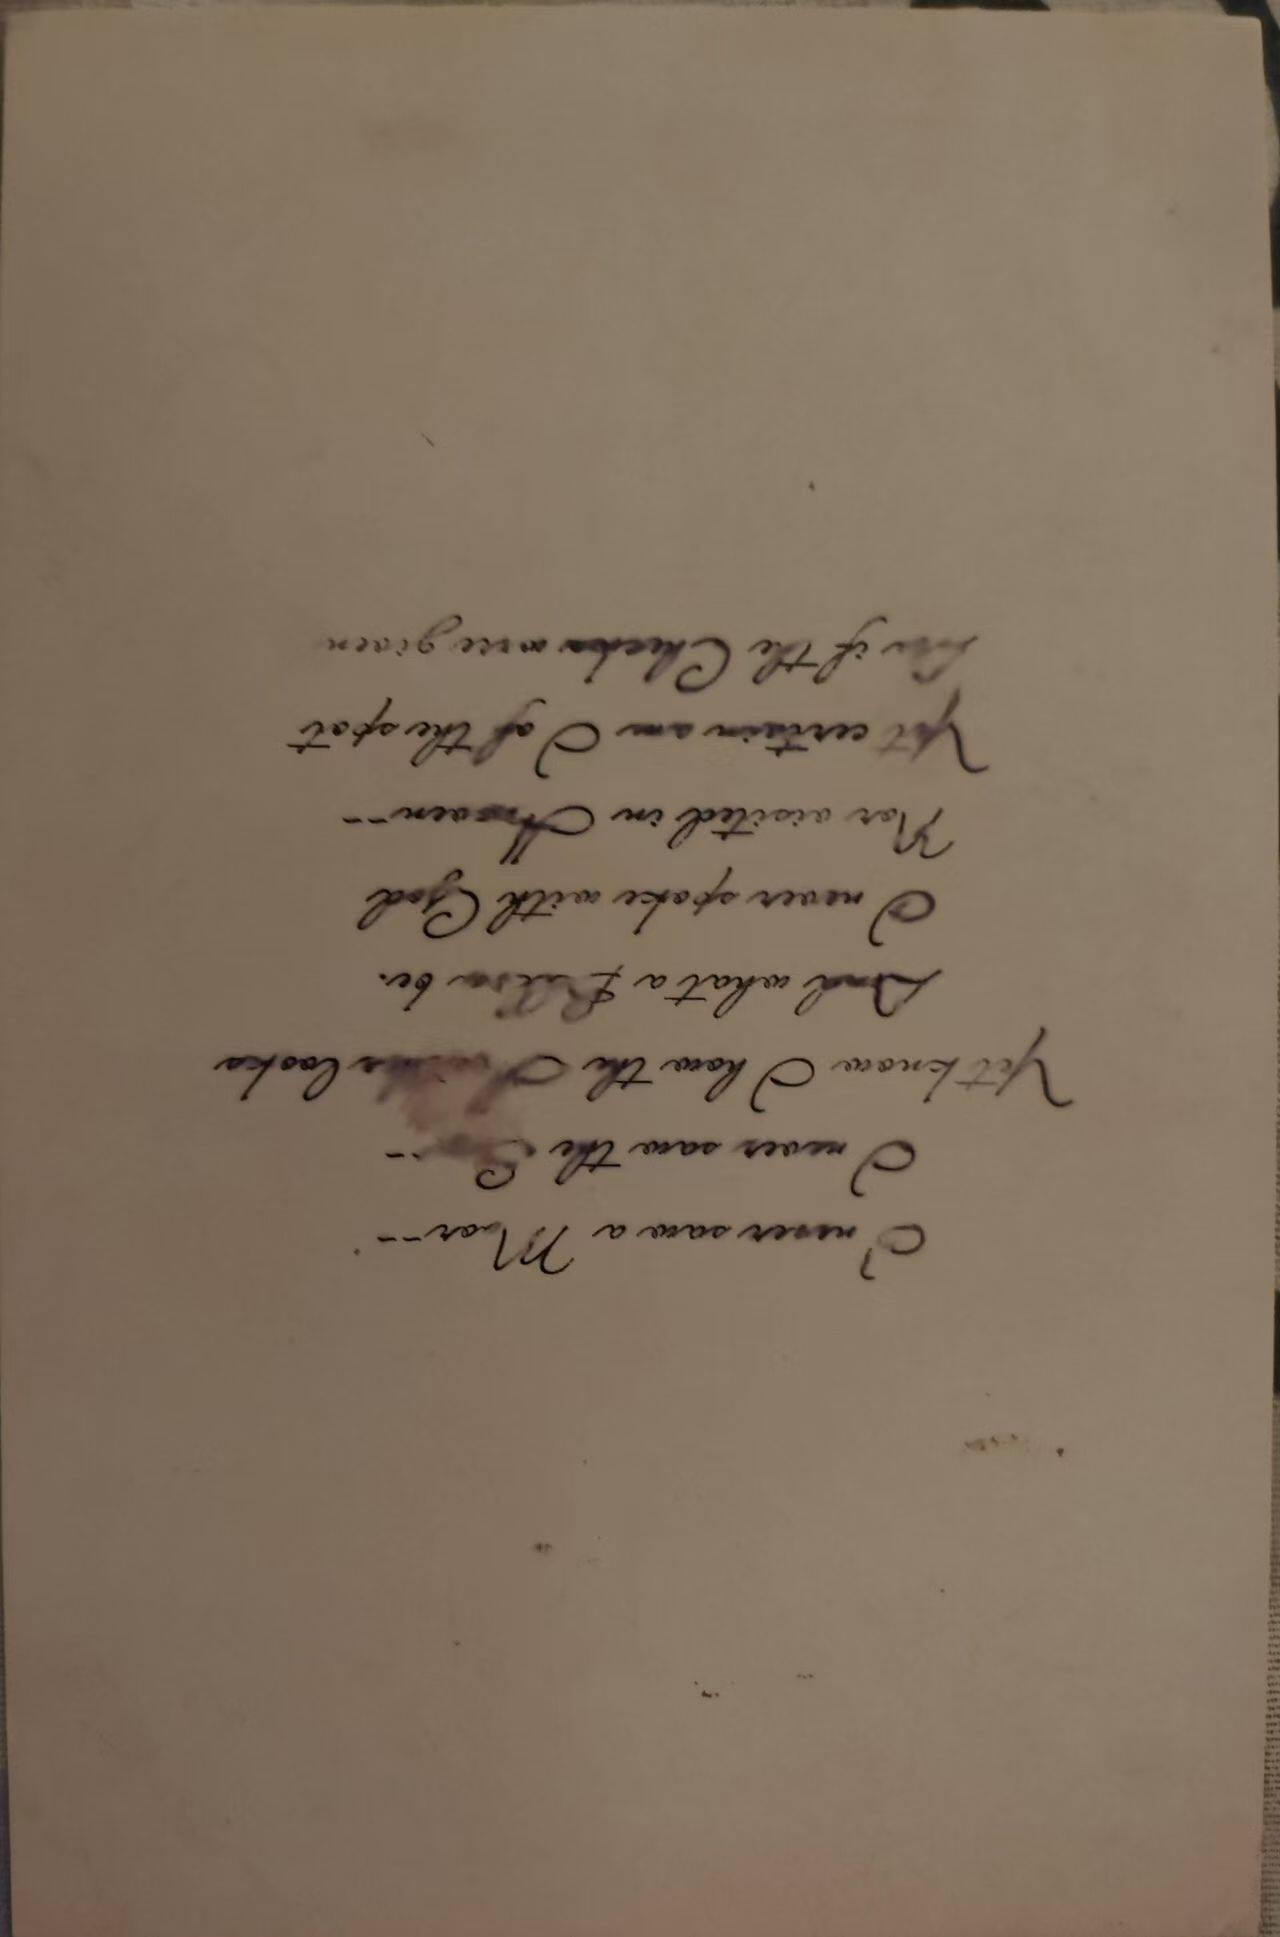 I never saw a Moor--
I never saw the
Yet know I how the looks
And what a be.
I never spoke with God
Nor visited in Heaven--
Yet certain am I of the spot
As if the Checks were given